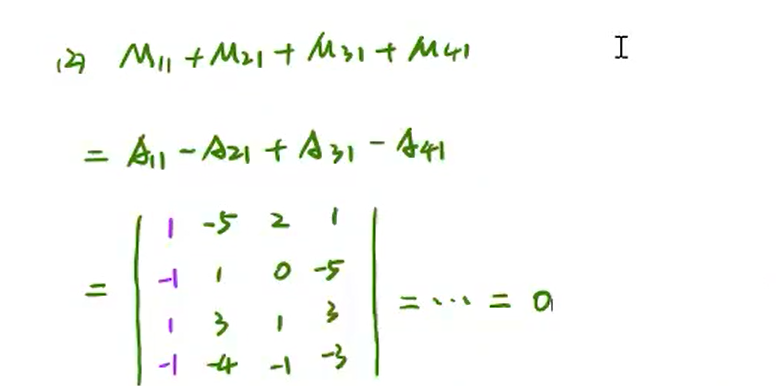 (2) M₁₁ + M₂₁ + M₃₁ + M₄₁
= A₁₁ - A₂₁ + A₃₁ - A₄₁
= | 1 -5 2 1 |
| -1 1 0 -5 |
| 1 3 1 3 | = ... = 0
| -1 -4 -1 -3 |